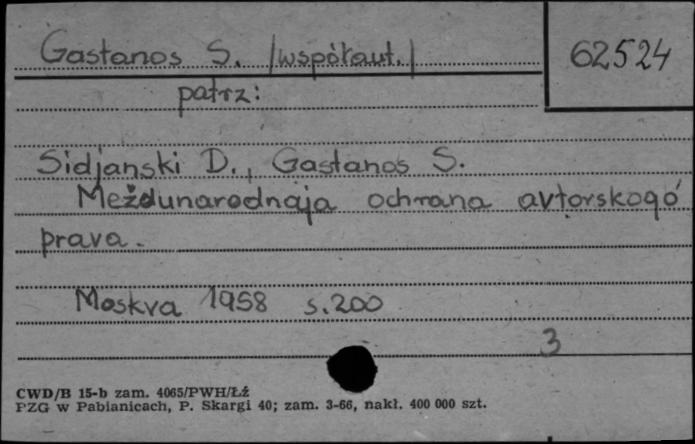 Gastanos S. /współaut./ 62524
patrz:
Sidjanski D., Gastanos S.
Meždunarodnaja ochrana avtorskogo
prava.
Moskva 1958 s.200
3
CWD/B 15-b zam. 4065/PWH/Łź
PZG w Pabianicach, P. Skargi 40; zam. 3-66, nakł. 400 000 szt.